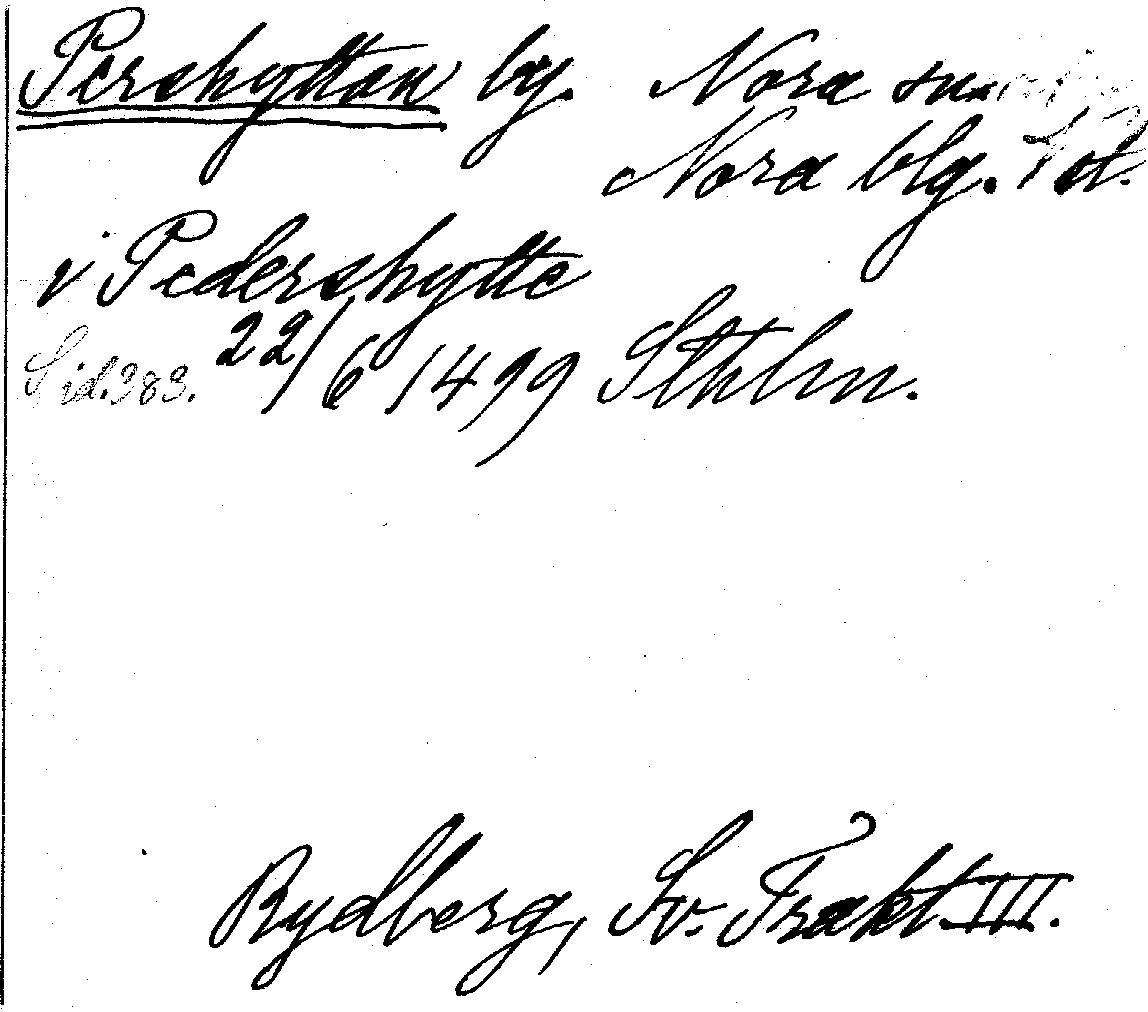 Pershyttan by. Nora
Nora blg.
i Pedershytte
Sid. 383. 22/6 1499 Sthlm.
Rydberg, Sv. Trakt. III.